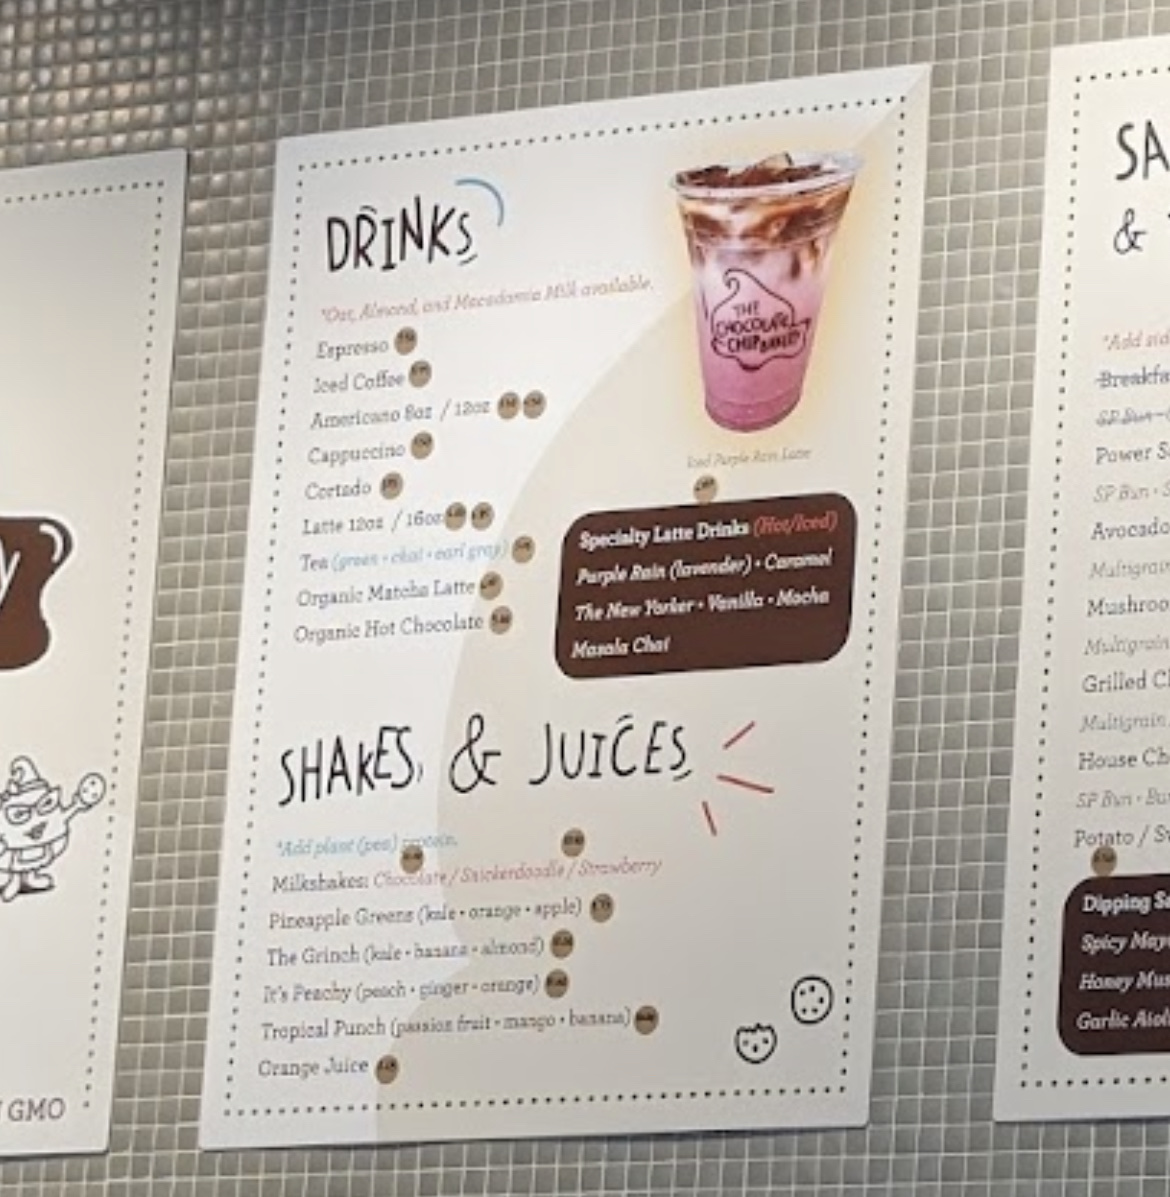 DRINKS
*Oat, Almond, and Macadamia Milk available.
Espresso
Iced Coffee
Americano 8oz / 12oz
Cappuccino
Cortado
Latte 12oz / 16oz
Tea (green • chai • earl gray)
Organic Matcha Latte
Organic Hot Chocolate
THE
CHOCOLATE
CHIP BAKERY
Iced Purple Rain Latte
Specialty Latte Drinks (Hot/Iced)
Purple Rain (lavender) • Caramel
The New Yorker • Vanilla • Mocha
Masala Chai
SHAKES & JUICES
*Add plant (pea) protein.
Milkshakes: Chocolate / Snickerdoodle / Strawberry
Pineapple Greens (kale • orange • apple)
The Grinch (kale • banana • almond)
It's Peachy (peach • ginger • orange)
Tropical Punch (passion fruit • mango • banana)
Orange Juice
y
GMO
SA
&
*Add sid
Breakfa
SP Bun
Power S
SP Bun • S
Avocado
Multigrain
Mushroo
Multigrain
Grilled Ch
Multigrain
House Ch
SP Bun • Bu
Potato / Sw
Dipping Sa
Spicy Mayo
Honey Mus
Garlic Aioli